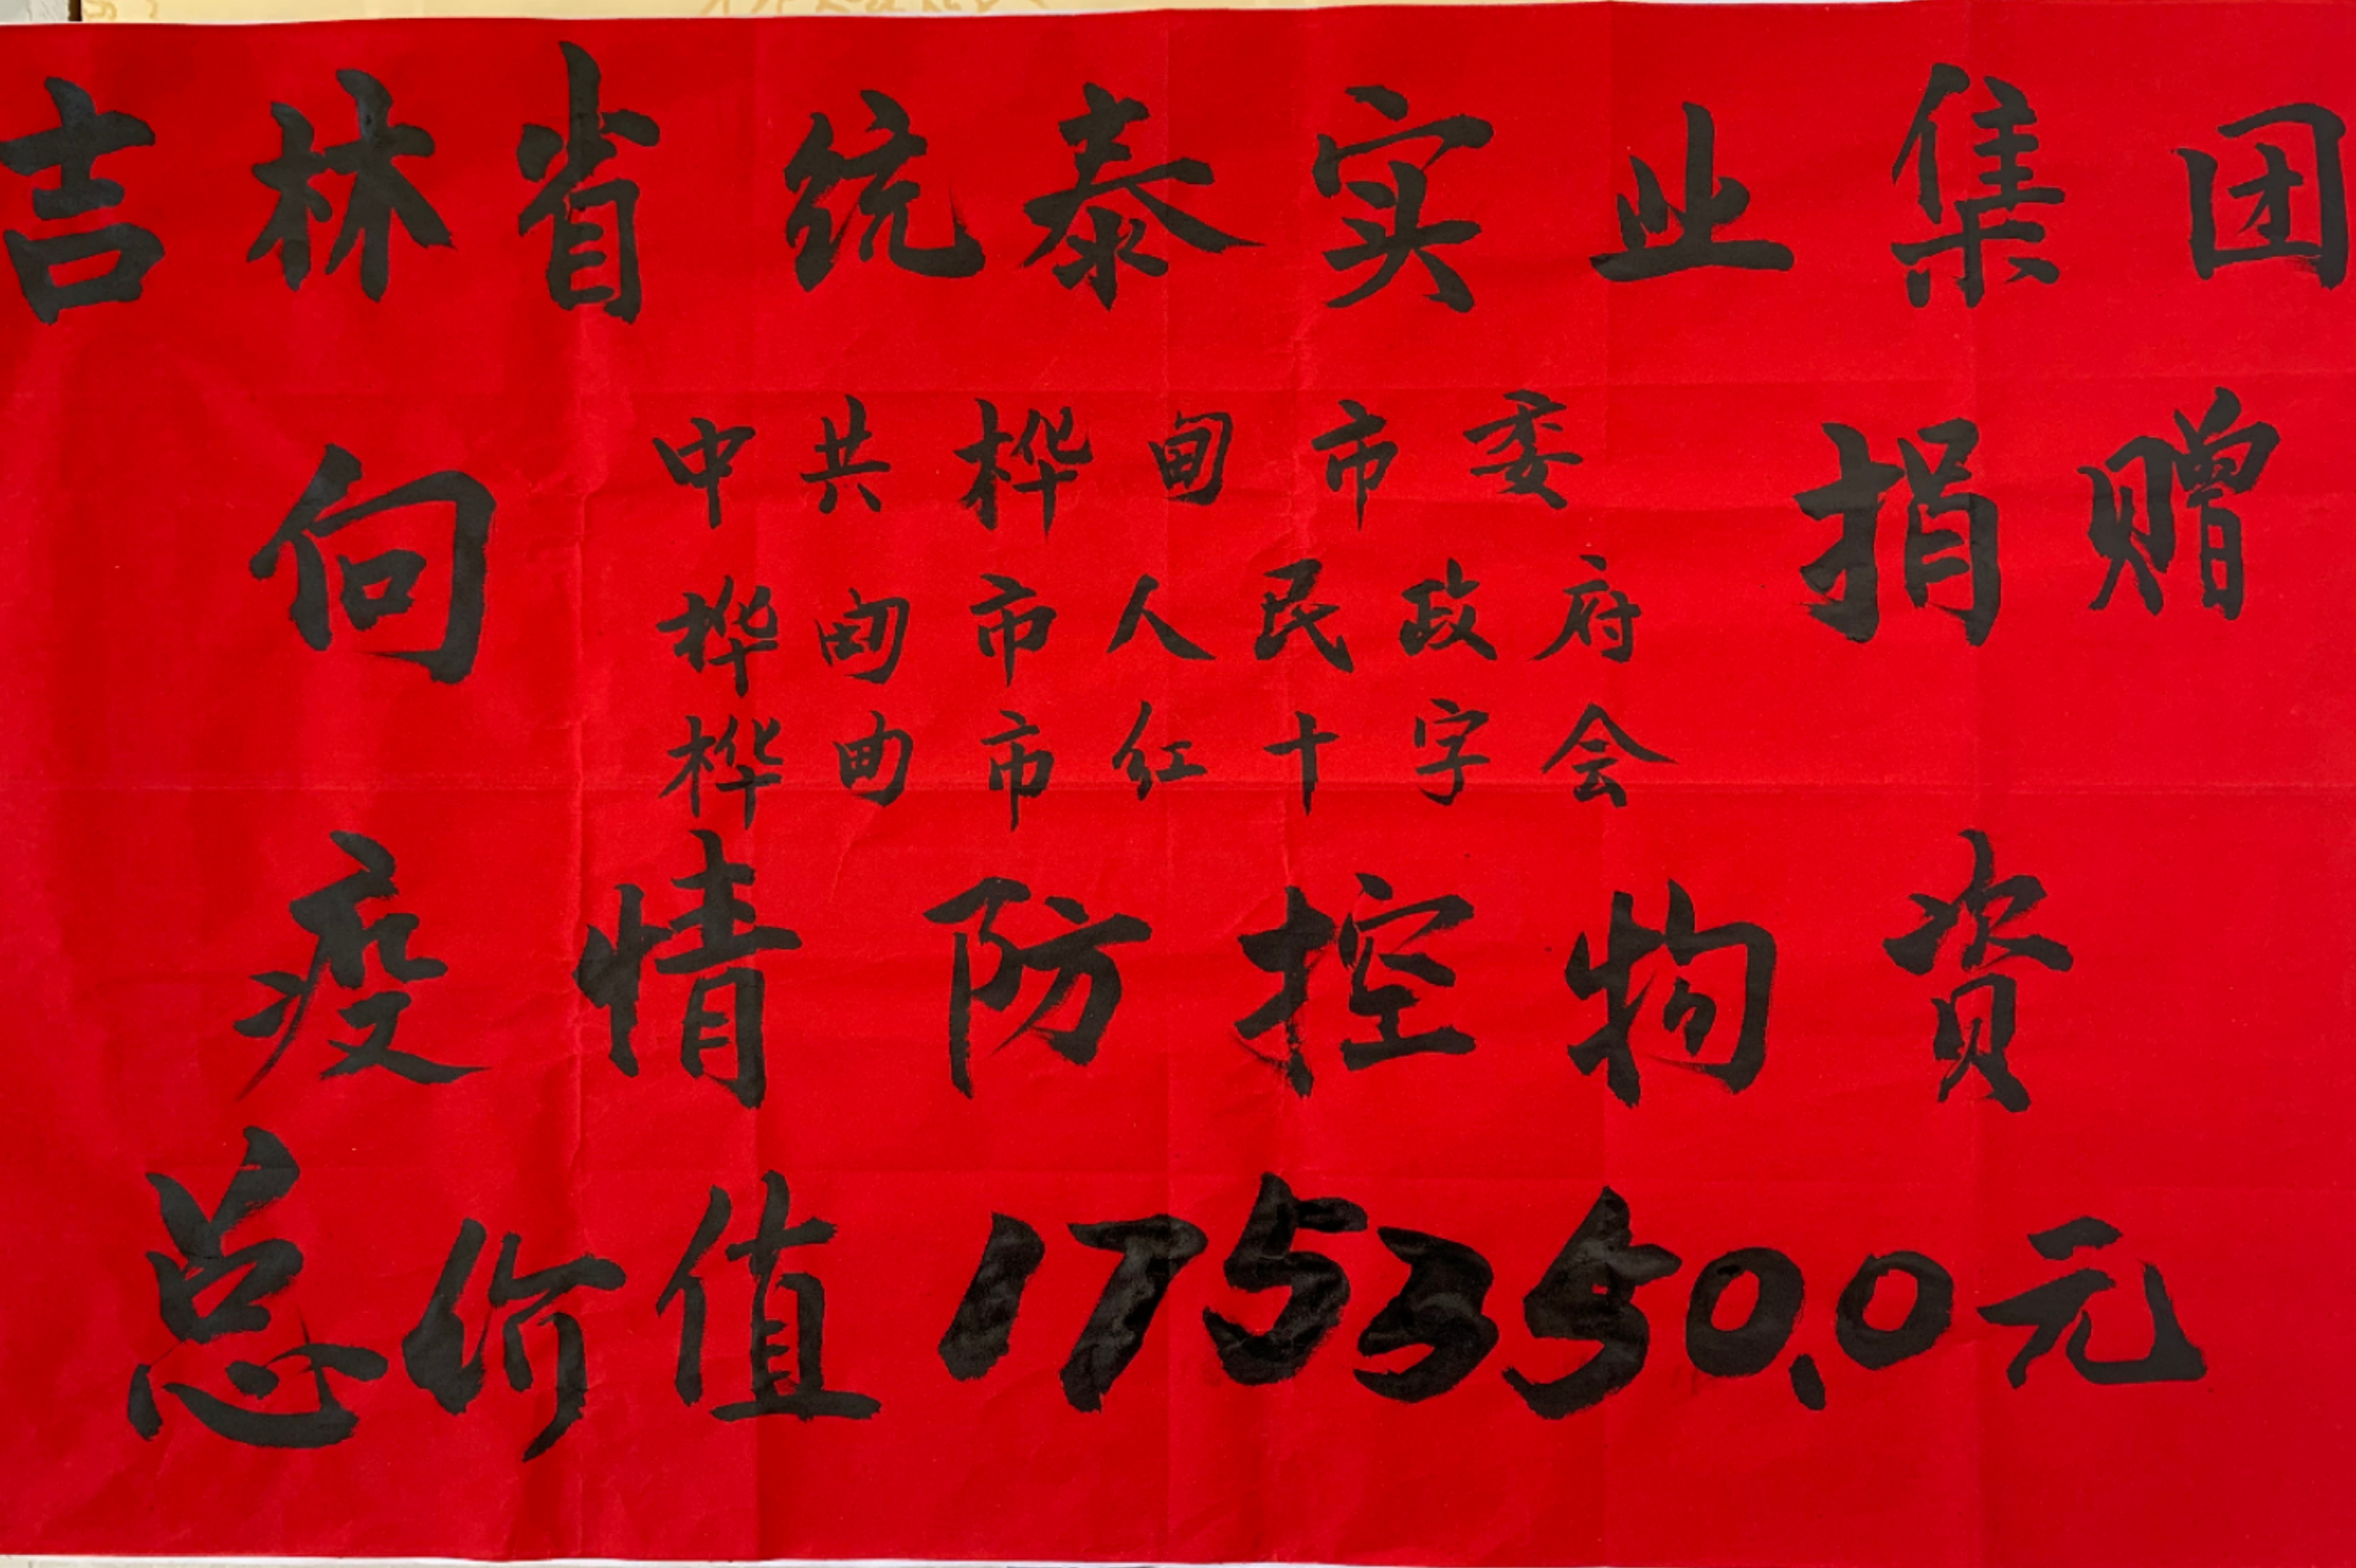 吉林省统泰实业集团
向
中共桦甸市委
桦甸市人民政府
桦甸市红十字会
捐赠
疫情防控物资
总价值175350.0元